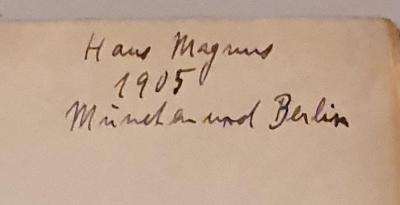 Hans Magnus
1905
München und Berlin